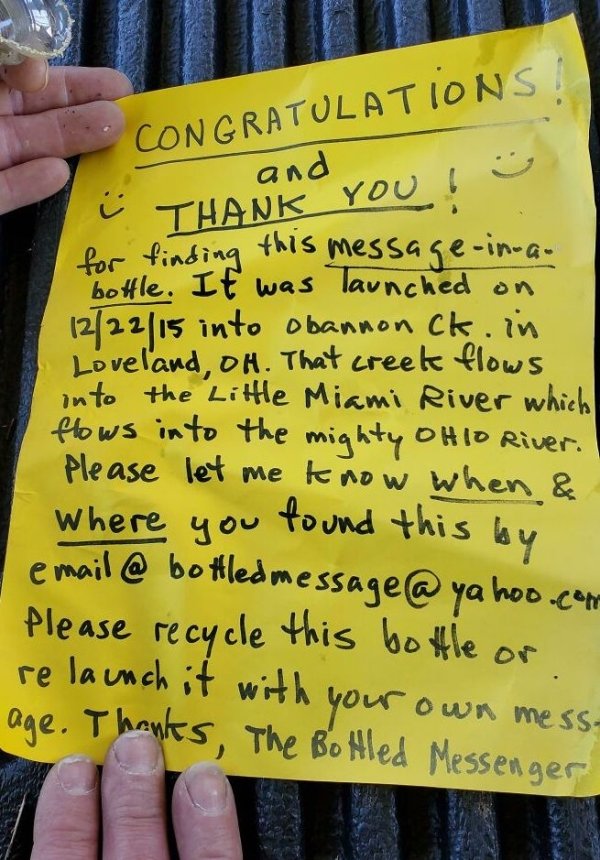 CONGRATULATIONS!
and
THANK YOU!
for finding this message-in-a-
bottle. It was launched on
12/22/15 into Obannon Ck. in
Loveland, OH. That creek flows
into the Little Miami River which
flows into the mighty OHIO River.
Please let me know when &
where you found this by
email @ bottledmessage@yahoo.com
Please recycle this bottle or
relaunch it with your own mess-
age. Thanks, The Bottled Messenger